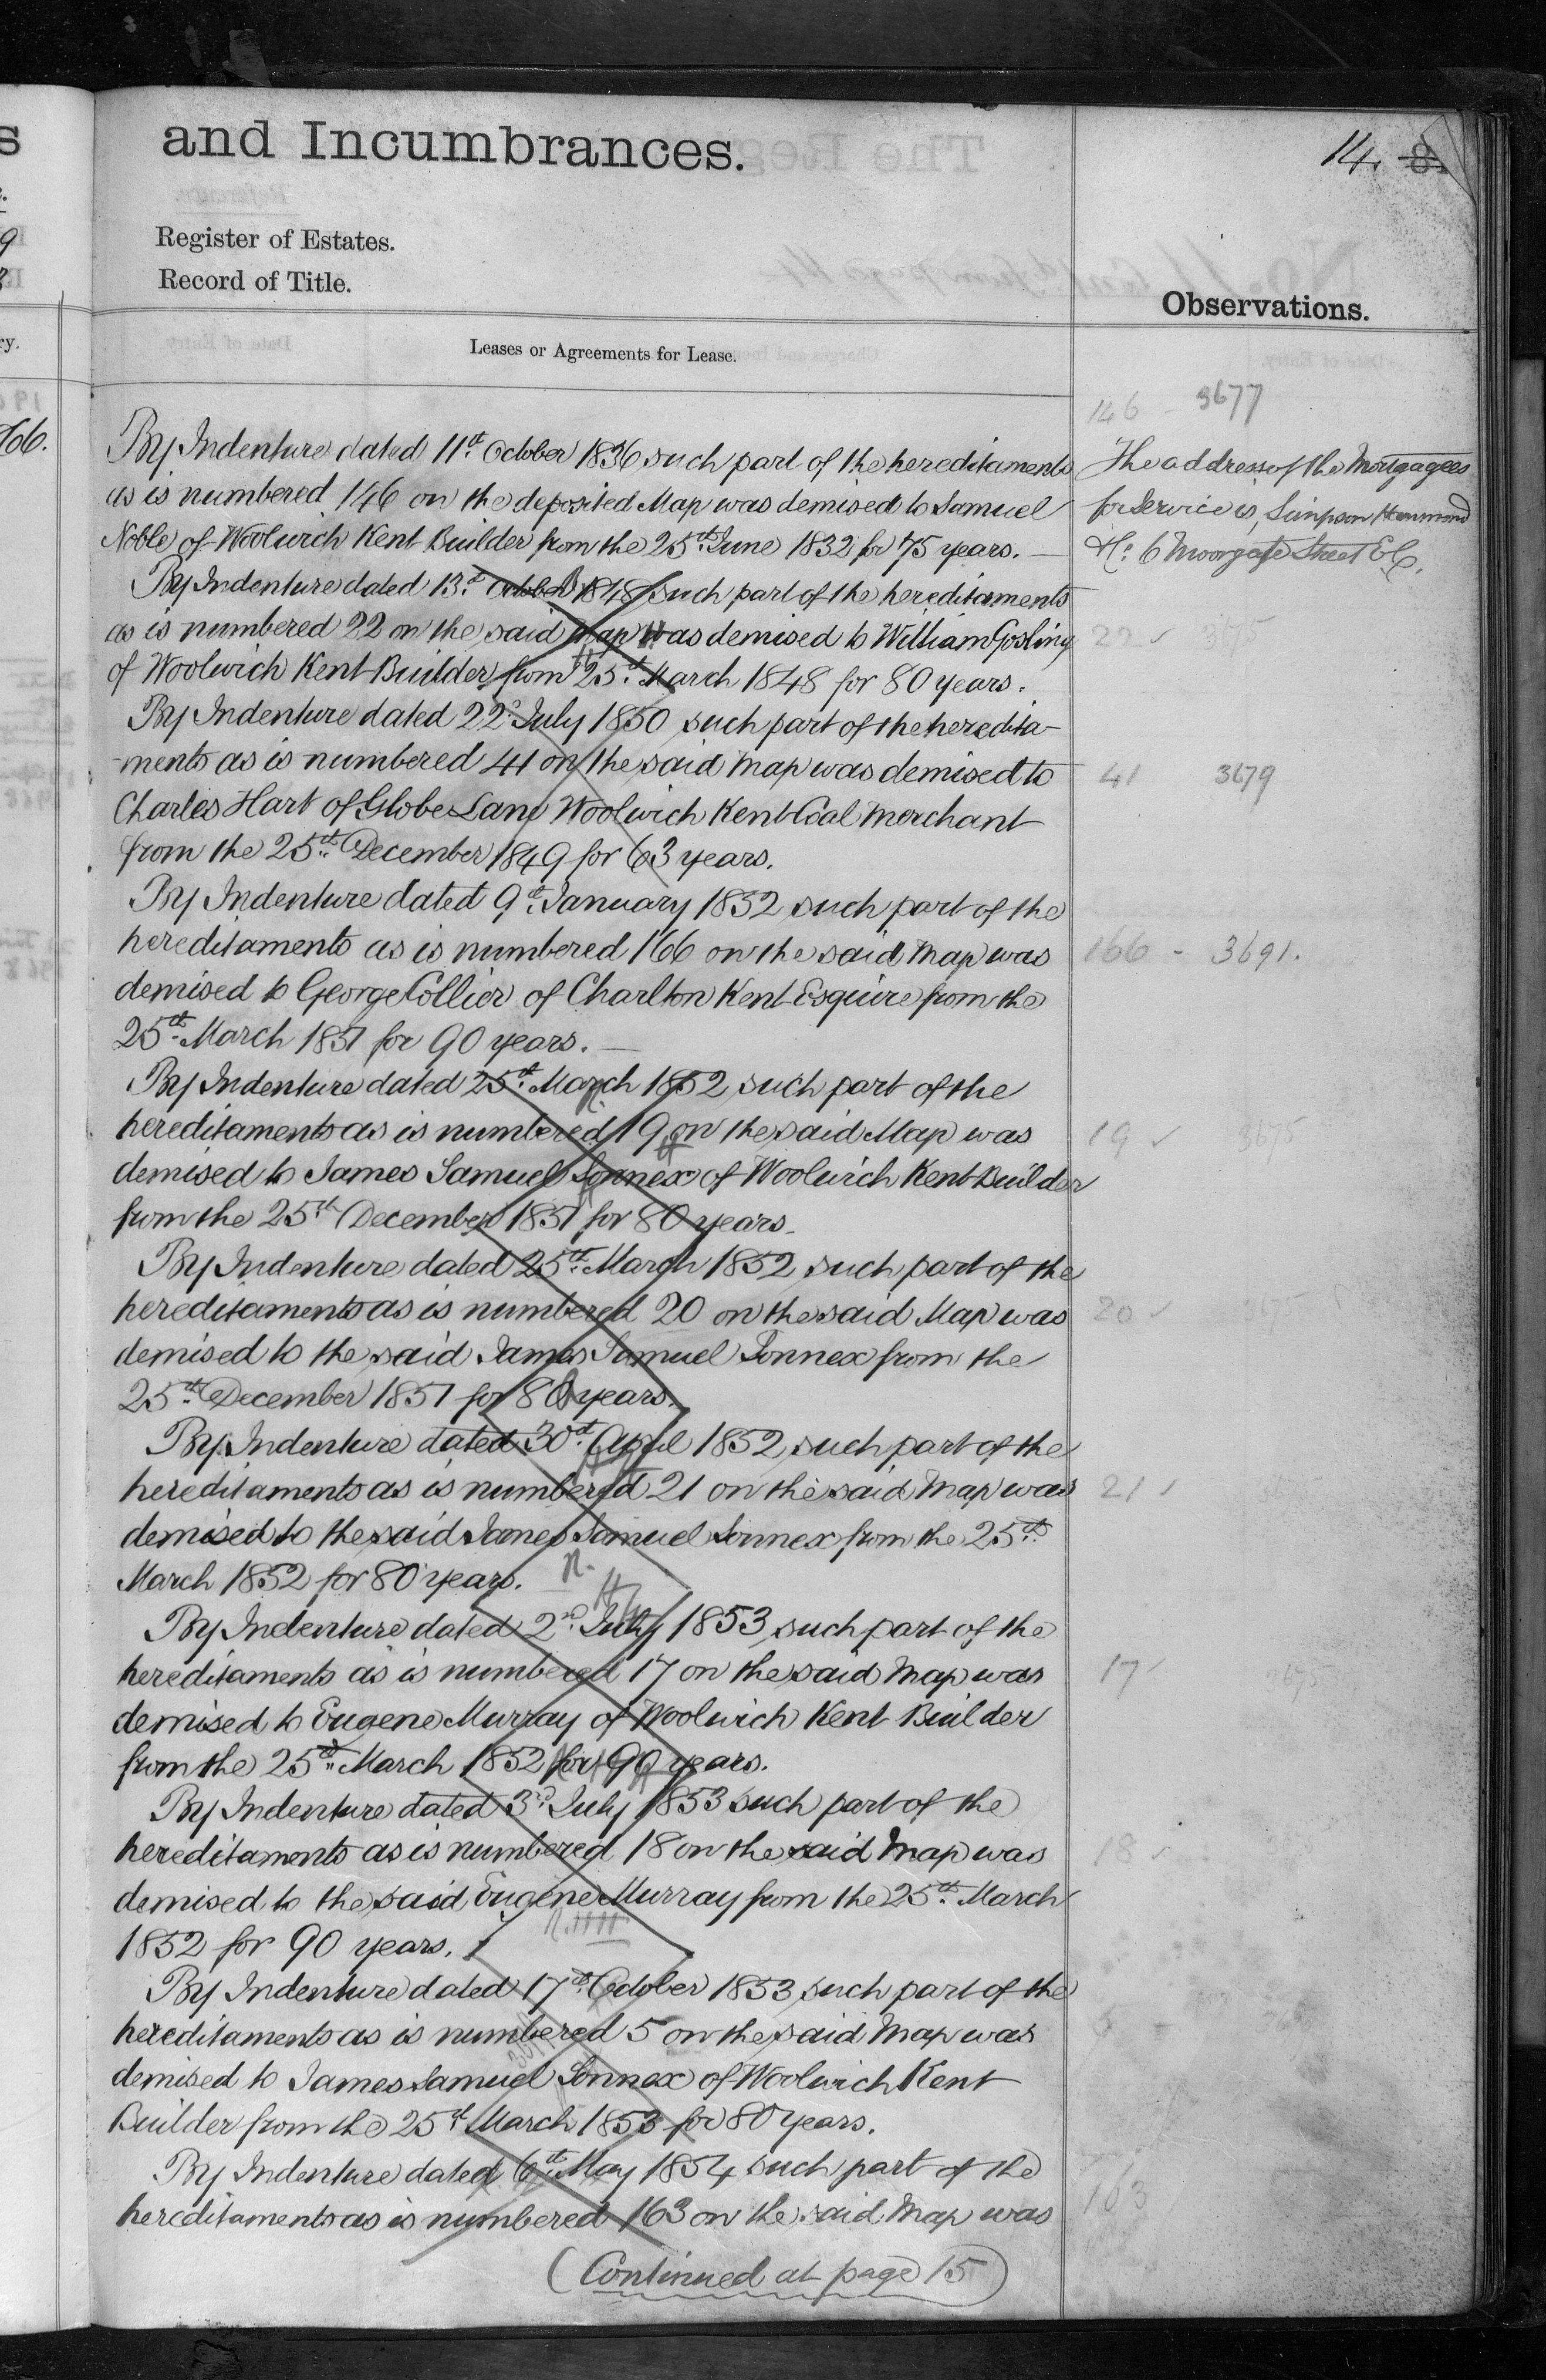 and Incumbrances.
14.
Register of Estates.
Record of Title.
Observations.
Leases or Agreements for Lease.
146 - 3677
By Indenture dated 11th October 1836 such part of the hereditaments
as is numbered 146 on the deposited Map was demised to Samuel
Noble of Woolwich Kent Builder from the 25th June 1832 for 75 years. —
The address of the Mortgagees
for Service is, Simpson Hammond
& Co. 6 Moorgate Street E.C.
By Indenture dated 13th October 1848 such part of the hereditaments
as is numbered 22 on the said Map was demised to William Gosling
22 ✓ 3675
of Woolwich Kent Builder from 25th March 1848 for 80 years.
By Indenture dated 22d July 1850 such part of the heredita-
-ments as is numbered 41 on the said Map was demised to
41 3679
Charles Hart of Globe Lane Woolwich Kent Coal Merchant
from the 25th December 1849 for 63 years.
By Indenture dated 9th January 1852 such part of the
hereditaments as is numbered 166 on the said Map was
166 - 3691.
demised to George Collier of Charlton Kent Esquire from the
25th March 1851 for 90 years. —
By Indenture dated 25th March 1852 such part of the
hereditaments as is numbered 19 on the said Map was
19 ✓ 3675
demised to James Samuel Sonnex of Woolwich Kent Builder
from the 25th December 1851 for 80 years.
By Indenture dated 25th March 1852 such part of the
hereditaments as is numbered 20 on the said Map was
20 ✓
demised to the said James Samuel Sonnex from the
25th December 1851 for 80 years.
By Indenture dated 30th April 1852 such part of the
hereditaments as is numbered 21 on the said Map was
21 ✓
demised to the said James Samuel Sonnex from the 25th
March 1852 for 80 years.
By Indenture dated 2nd July 1853 such part of the
hereditaments as is numbered 17 on the said Map was
17 ✓
demised to Eugene Murray of Woolwich Kent Builder
from the 25th March 1852 for 90 years.
By Indenture dated 3d July 1853 such part of the
hereditaments as is numbered 18 on the said Map was
18 ✓
demised to the said Eugene Murray from the 25th March
1852 for 90 years.
By Indenture dated 17th October 1853 such part of the
hereditaments as is numbered 5 on the said Map was
5
demised to James Samuel Sonnex of Woolwich Kent
Builder from the 25th March 1853 for 80 years.
By Indenture dated 6th May 1854 such part of the
hereditaments as is numbered 163 on the said Map was
163
(Continued at page 15)